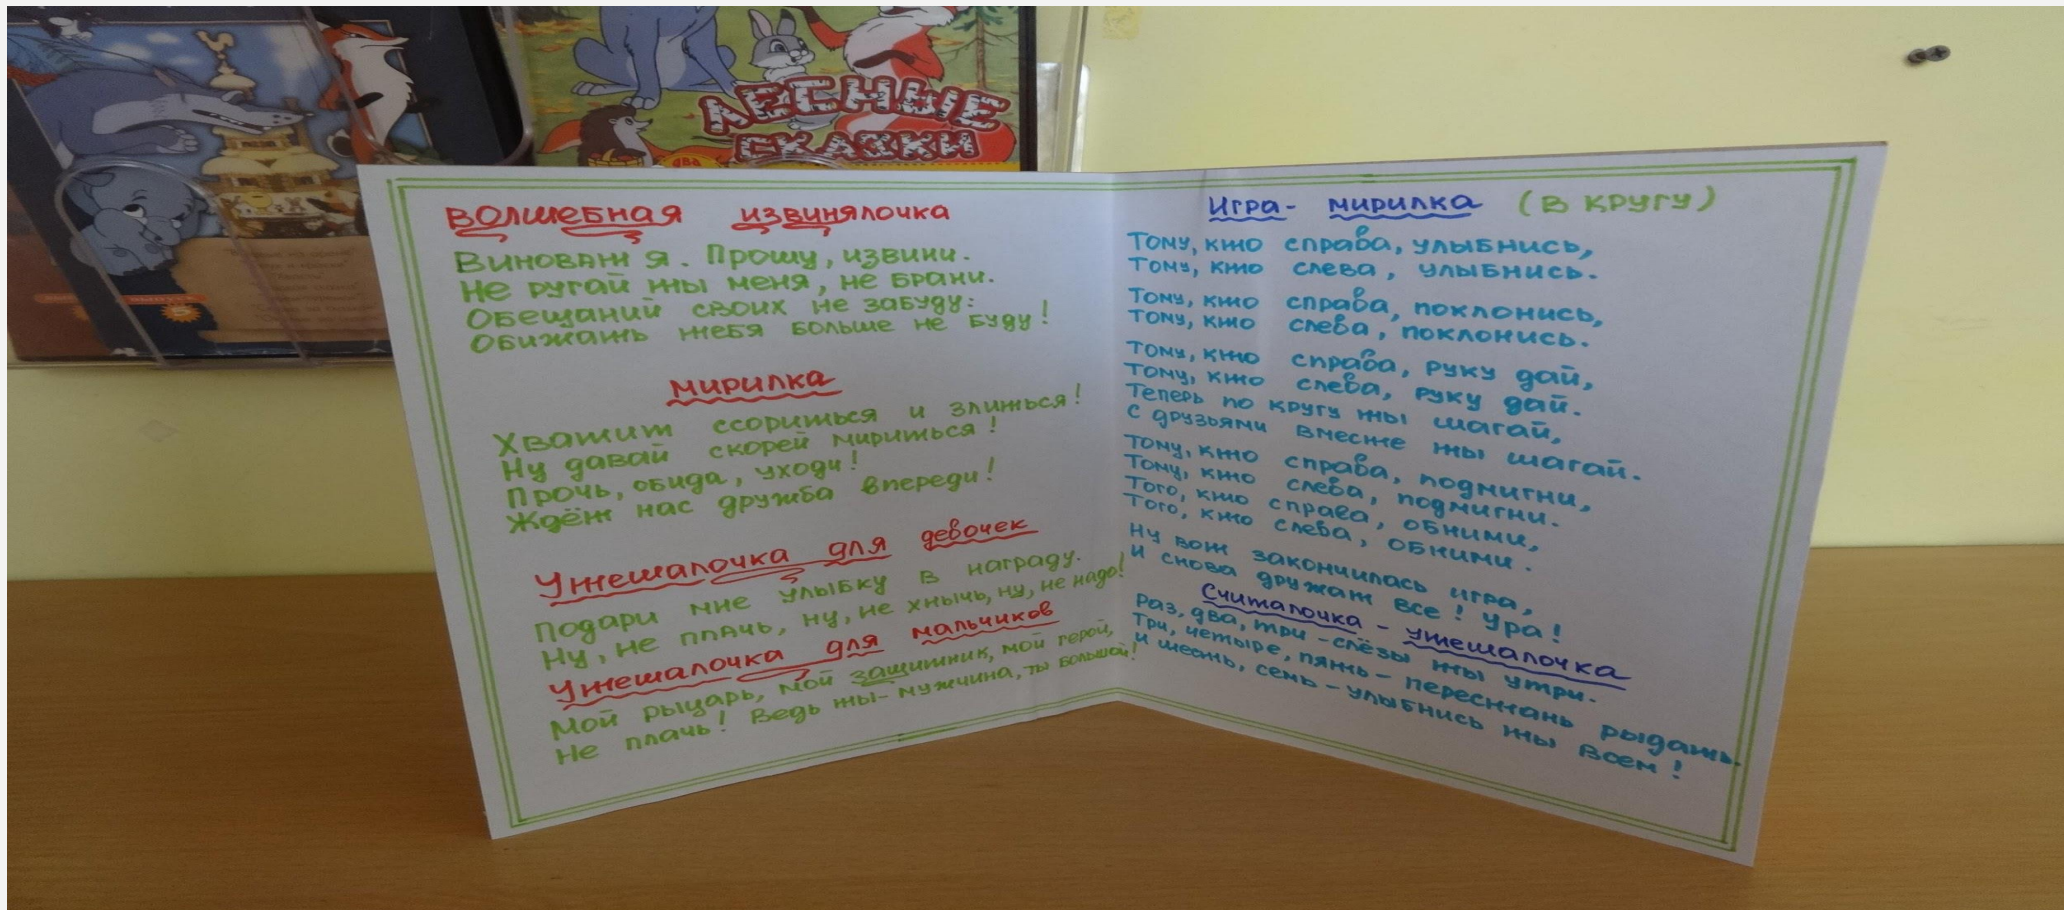 ЛЕСНЫЕ
СКАЗКИ
ДВА
Волшебная извинялочка
Виноват я. Прошу, извини.
Не ругай ты меня, не брани.
Обещаний своих не забуду:
Обижать тебя больше не буду!
Мирилка
Хватит ссориться и злиться!
Ну давай скорей мириться!
Прочь, обида, уходи!
Ждём нас дружба впереди!
Утешалочка для девочек
Подари мне улыбку в награду.
Ну, не плачь, ну, не хнычь, ну, не надо!
Утешалочка для мальчиков
Мой рыцарь, мой защитник, мой герой,
Не плачь! Ведь ты - мужчина, ты большой!
Игра - мирилка (в кругу)
Тому, кто справа, улыбнись,
Тому, кто слева, улыбнись.
Тому, кто справа, поклонись,
Тому, кто слева, поклонись.
Тому, кто справа, руку дай,
Тому, кто слева, руку дай.
Теперь по кругу ты шагай,
С друзьями вместе ты шагай.
Тому, кто справа, подмигни,
Тому, кто слева, подмигни.
Того, кто справа, обними,
Того, кто слева, обними.
Ну вот закончилась игра,
И снова дружат все! Ура!
Считалочка - утешалочка
Раз, два, три - слёзы ты утри.
Три, четыре, пять - перестань рыдать.
И шесть, семь - улыбнись ты всем!